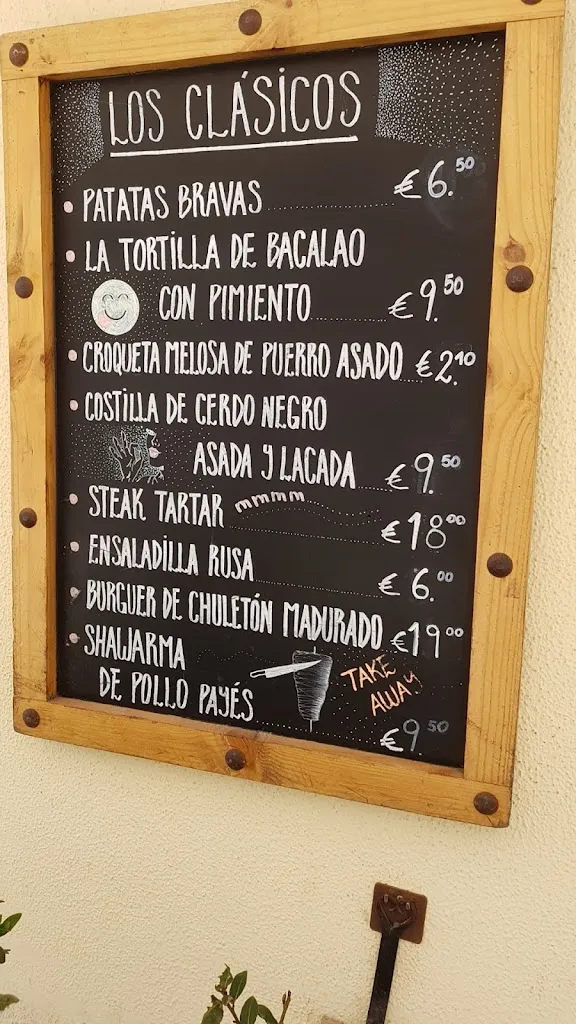 LOS CLÁSICOS
• PATATAS BRAVAS € 6.50
• LA TORTILLA DE BACALAO
CON PIMIENTO € 9.50
• CROQUETA MELOSA DE PUERRO ASADO € 2.10
• COSTILLA DE CERDO NEGRO
ASADA Y LACADA € 9.50
• STEAK TARTAR mmmm € 18.00
• ENSALADILLA RUSA € 6.00
• BURGUER DE CHULETÓN MADURADO € 19.00
• SHAWARMA
DE POLLO PAYÉS
TAKE
AWAY
€ 9.50